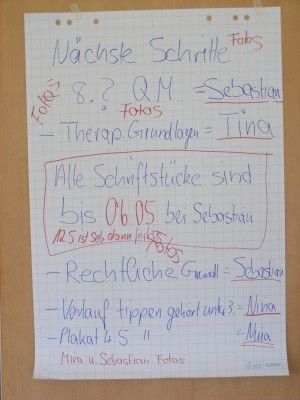 Nächste Schritte Fotos
Fotos 8.? QM = Sebastian
Fotos
- Therap. Grundlagen = Tina
Alle Schriftstücke sind
bis 06.05 bei Sebastian
12.5 ist Seb. dann fertig
Fotos
- Rechtliche Grundl = Sebastian
- Verlauf tippen gehört unter 3. = Nina
- Plakat 4 S " = Nina
Mira u. Sebastian Fotos